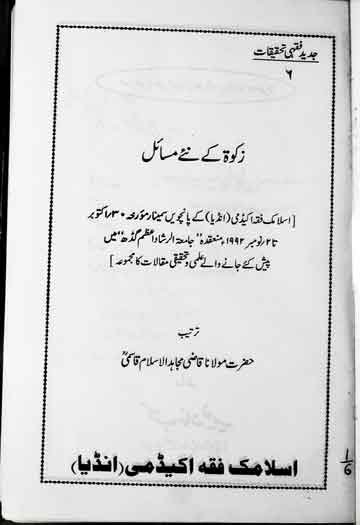 جدید فقہی تحقیقات
۶
زکوٰۃ کے نئے مسائل
[اسلامک فقہ اکیڈمی (انڈیا) کے پانچویں سمینار مؤرخہ ۳۰/اکتوبر
تا ۲/نومبر ۱۹۹۲ء منعقدہ "جامعۃ الرشاد اعظم گڈھ" میں
پیش کئے جانے والے علمی و تحقیقی مقالات کا مجموعہ]
ترتیب
حضرت مولانا قاضی مجاہد الاسلام قاسمیؒ
اسلامک فقہ اکیڈمی (انڈیا)
1/6